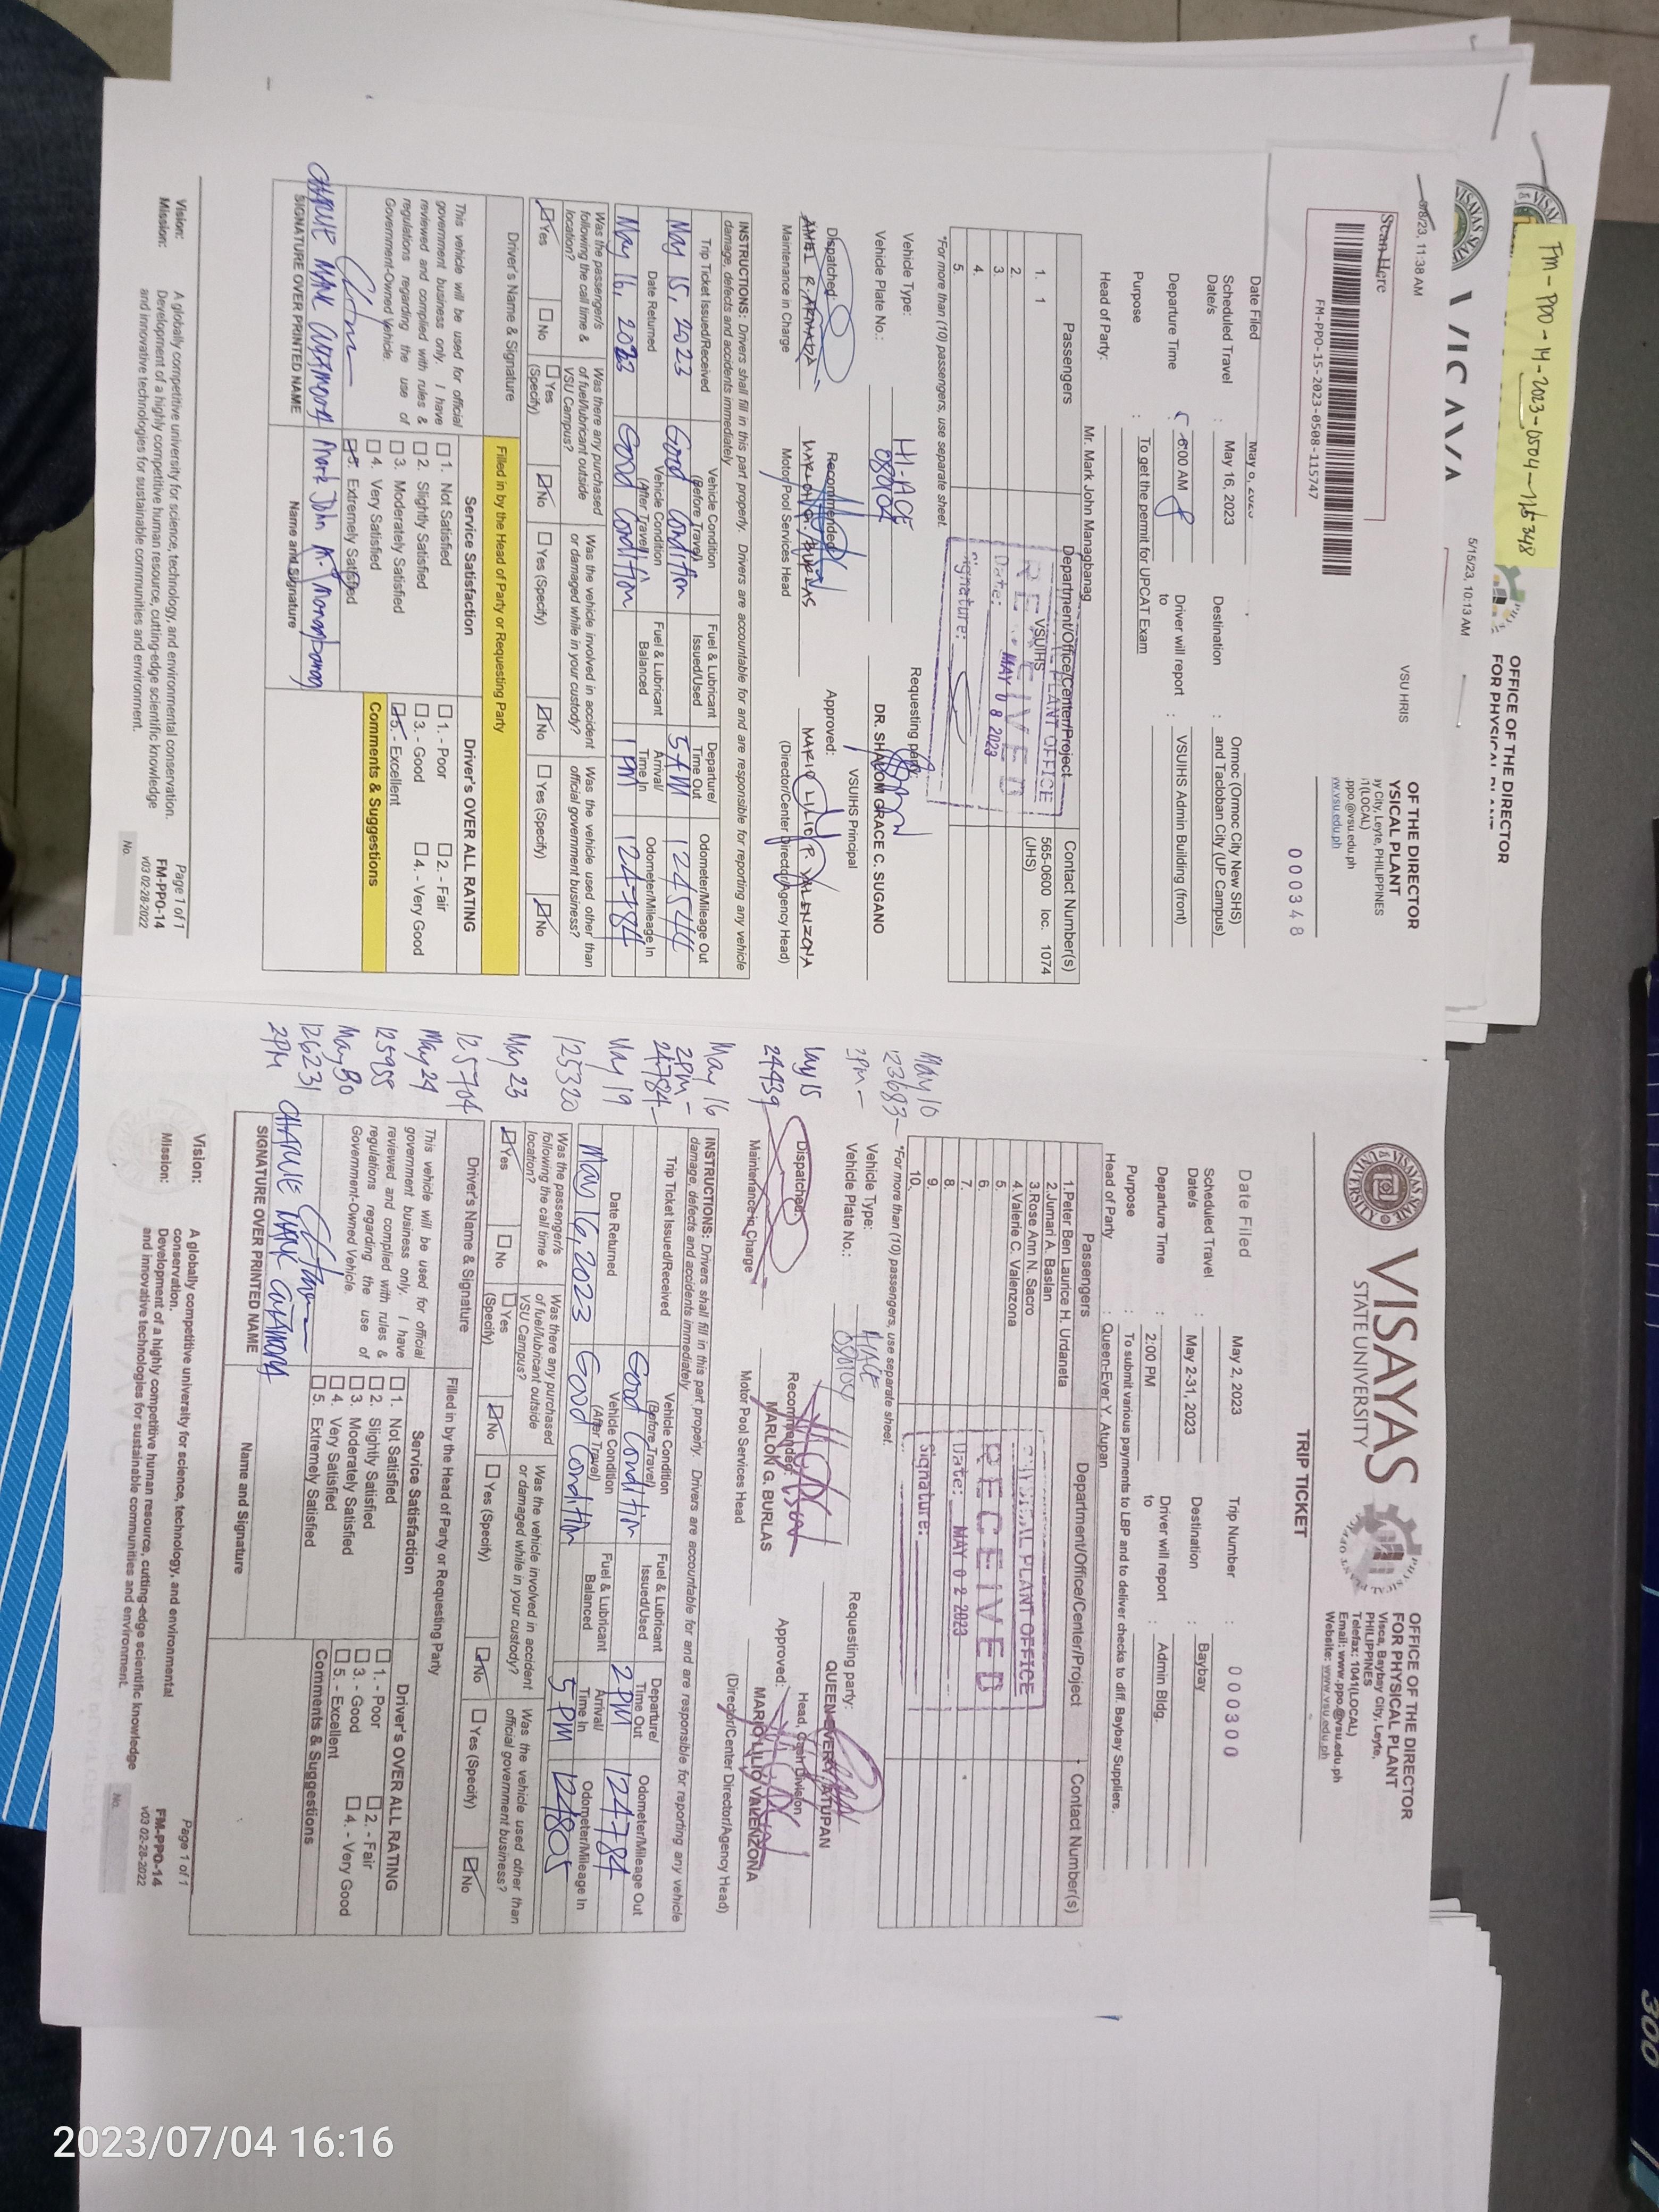 Fm-PPO-14-2023-0504-115348
OFFICE OF THE DIRECTOR
5/15/23, 10:13 AM
11:38 AM
VSU HRIS
OF THE DIRECTOR
YSICAL PLANT
y City, Leyte, PHILIPPINES
1(LOCAL)
ppo@vsu.edu.ph
w.vsu.edu.ph
Scan Here
FM-PPO-15-2023-0508-115747
000348
Date Filed
Scheduled Travel Date/s : May 16, 2023 Destination : Ormoc (Ormoc City New SHS) and Tacloban City (UP Campus)
Departure Time : 5:00 AM Driver will report to : VSUIHS Admin Building (front)
Purpose : To get the permit for UPCAT Exam
Head of Party: Mr. Mark John Managbanag
Passengers Department/Office/Center/Project Contact Number(s)
1. 1 VSUIHS 565-0600 loc. 1074 (JHS)
2.
3.
4.
5.
PLANT OFFICE
RECEIVED
Date: MAY 08 2023
Signature:
*For more than (10) passengers, use separate sheet.
Vehicle Type: HI-ACE
Vehicle Plate No.: 080104
Requesting party:
DR. SHALOM GRACE C. SUGANO
VSUIHS Principal
Dispatched: Recommended: Approved:
ANEL R. ARMADA MARLON G. BURLAS MARIO LILIO P. VALENZONA
Maintenance in Charge Motor Pool Services Head (Director/Center Director/Agency Head)
INSTRUCTIONS: Drivers shall fill in this part properly. Drivers are accountable for and are responsible for reporting any vehicle damage, defects and accidents immediately
Trip Ticket Issued/Received Vehicle Condition (Before Travel) Fuel & Lubricant Issued/Used Departure/ Time Out Odometer/Mileage Out
May 15, 2023 Good Condition 5AM 124544
Date Returned Vehicle Condition (After Travel) Fuel & Lubricant Balanced Arrival/ Time In Odometer/Mileage In
May 16, 2023 Good Condition 1PM 124784
Was the passenger/s following the call time & location? Was there any purchased of fuel/lubricant outside VSU Campus? Was the vehicle involved in accident or damaged while in your custody? Was the vehicle used other than official government business?
Yes No Yes (Specify) No Yes (Specify) No Yes (Specify) No
Driver's Name & Signature Filled in by the Head of Party or Requesting Party
This vehicle will be used for official government business only. I have reviewed and complied with rules & regulations regarding the use of Government-Owned Vehicle.
Service Satisfaction
1. Not Satisfied
2. Slightly Satisfied
3. Moderately Satisfied
4. Very Satisfied
5. Extremely Satisfied
Driver's OVER ALL RATING
1. - Poor 2. - Fair
3. - Good 4. - Very Good
5. - Excellent
Comments & Suggestions
CHARLIE MARK
SIGNATURE OVER PRINTED NAME
Mark John K. Managbanag
Name and Signature
Vision: A globally competitive university for science, technology, and environmental conservation.
Mission: Development of a highly competitive human resource, cutting-edge scientific knowledge and innovative technologies for sustainable communities and environment.
Page 1 of 1
FM-PPO-14
v03 02-28-2022
No.
VISAYAS
STATE UNIVERSITY
OFFICE OF THE DIRECTOR
FOR PHYSICAL PLANT
Visca, Baybay City, Leyte,
PHILIPPINES
Telefax: 1041(LOCAL)
Email: www.ppo@vsu.edu.ph
Website: www.vsu.edu.ph
TRIP TICKET
Date Filed May 2, 2023 Trip Number : 000300
Scheduled Travel Date/s : May 2-31, 2023 Destination : Baybay
Departure Time : 2:00 PM Driver will report to : Admin Bldg.
Purpose : To submit various payments to LBP and to deliver checks to diff. Baybay Suppliers.
Head of Party : Queen-Ever Y. Atupan
Passengers Department/Office/Center/Project Contact Number(s)
1.Peter Ben Laurice H. Urdaneta
2.Jumari A. Baslan
3.Rose Ann N. Sacro
4.Valerie C. Valenzona
5.
6.
7.
8.
9.
10.
PHYSICAL PLANT OFFICE
RECEIVED
Date: MAY 02 2023
Signature:
*For more than (10) passengers, use separate sheet.
Vehicle Type: HIACE
Vehicle Plate No.: 080104
Requesting party:
QUEEN-EVER Y. ATUPAN
Head, Cash Division
Dispatched: Recommended: Approved:
MARLON G. BURLAS MARIO LILIO VALENZONA
Maintenance in Charge Motor Pool Services Head (Director/Center Director/Agency Head)
May 10
123683-
2PM-
May 15
24439
May 16
2PM-
24784-
May 19
125320
May 23
125704
May 24
125988
May 30
126231
2PM
INSTRUCTIONS: Drivers shall fill in this part properly. Drivers are accountable for and are responsible for reporting any vehicle damage, defects and accidents immediately
Trip Ticket Issued/Received Vehicle Condition (Before Travel) Fuel & Lubricant Issued/Used Departure/ Time Out Odometer/Mileage Out
Good Condition 2PM 124784
Date Returned Vehicle Condition (After Travel) Fuel & Lubricant Balanced Arrival/ Time In Odometer/Mileage In
May 16, 2023 Good Condition 5PM 124805
Was the passenger/s following the call time & location? Was there any purchased of fuel/lubricant outside VSU Campus? Was the vehicle involved in accident or damaged while in your custody? Was the vehicle used other than official government business?
Yes No Yes (Specify) No Yes (Specify) No Yes (Specify) No
Driver's Name & Signature Filled in by the Head of Party or Requesting Party
This vehicle will be used for official government business only. I have reviewed and complied with rules & regulations regarding the use of Government-Owned Vehicle.
Service Satisfaction
1. Not Satisfied
2. Slightly Satisfied
3. Moderately Satisfied
4. Very Satisfied
5. Extremely Satisfied
Driver's OVER ALL RATING
1. - Poor 2. - Fair
3. - Good 4. - Very Good
5. - Excellent
Comments & Suggestions
CHARLIE MARK
SIGNATURE OVER PRINTED NAME
Name and Signature
Vision: A globally competitive university for science, technology, and environmental conservation.
Mission: Development of a highly competitive human resource, cutting-edge scientific knowledge and innovative technologies for sustainable communities and environment.
Page 1 of 1
FM-PPO-14
v03 02-28-2022
No.
300
2023/07/04 16:16